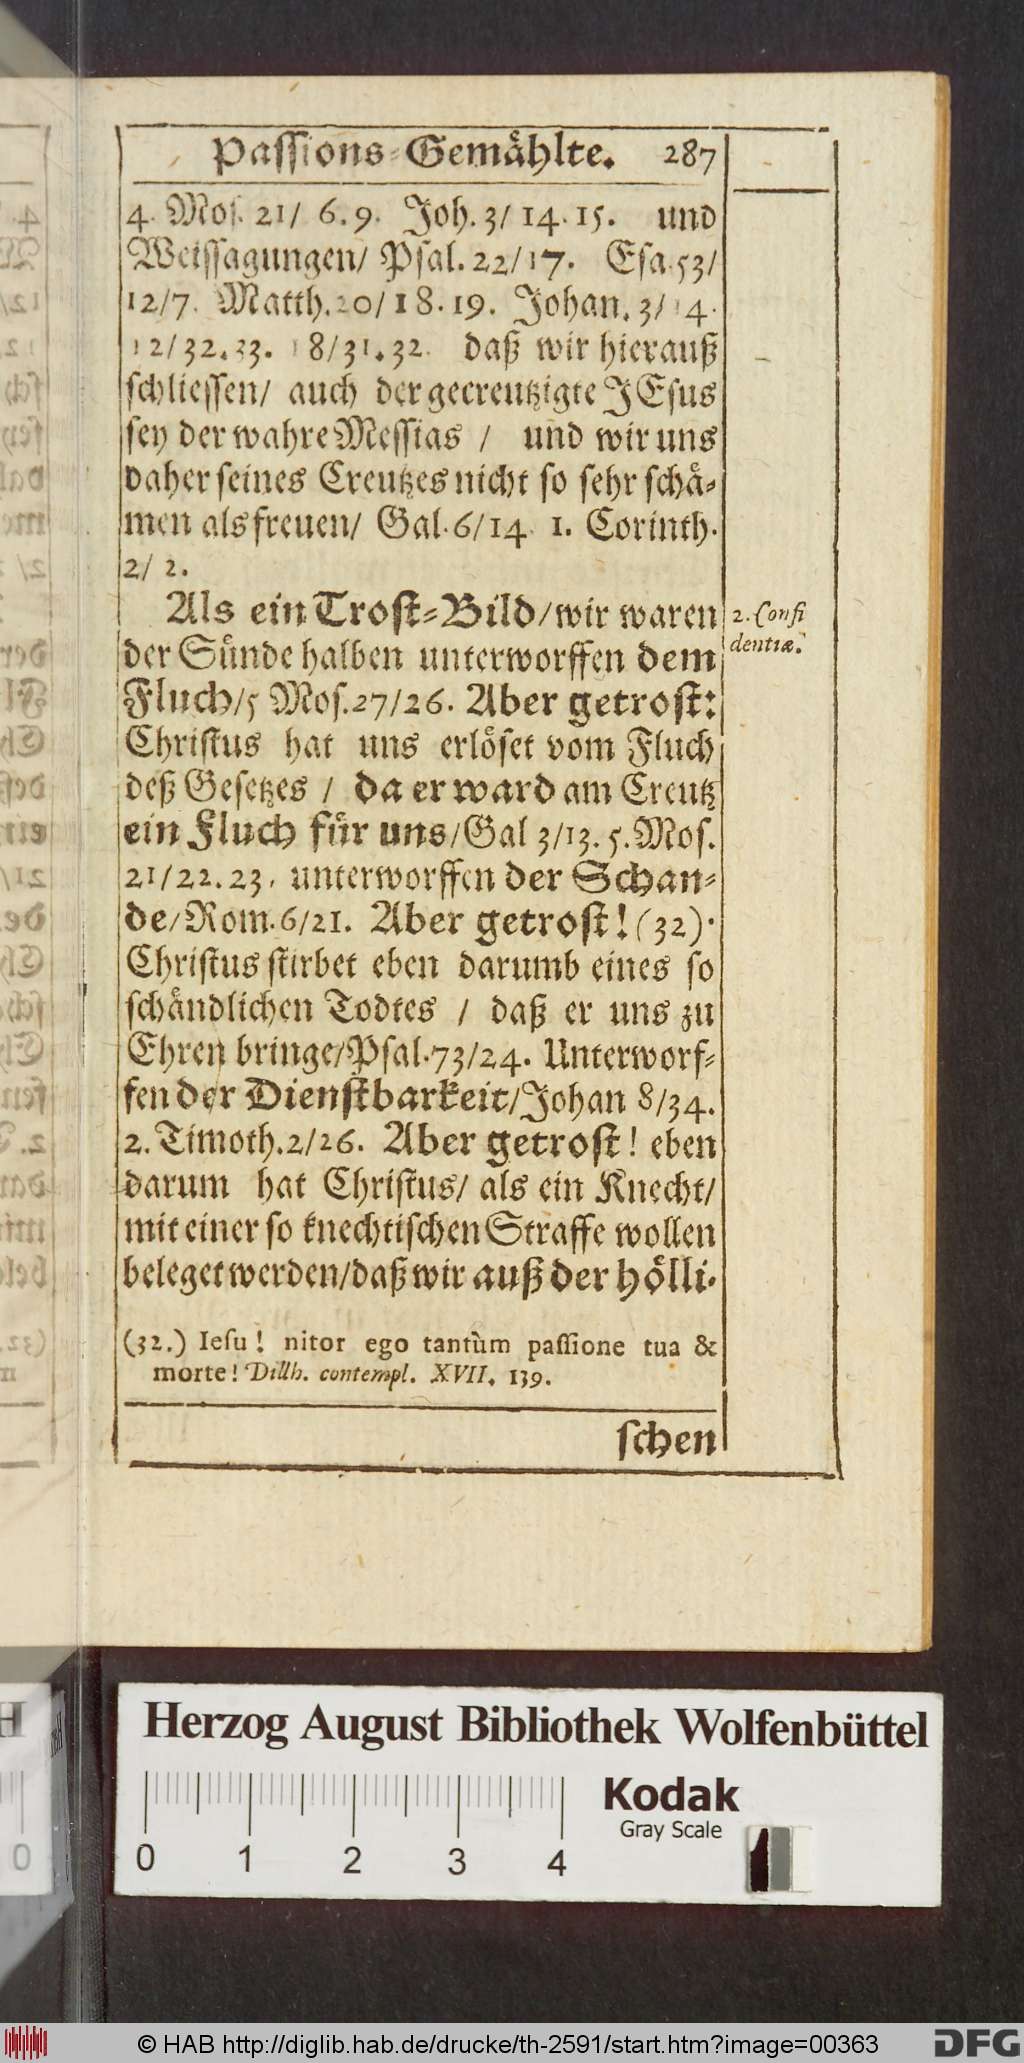 Passions-Gemählte. 287
4. Mos. 21/ 6. 9. Joh. 3/ 14. 15. und
Weissagungen/ Psal. 22/17. Esa. 53/
12/7. Matth. 20/18. 19. Johan. 3/14.
12/32. 33. 18/31. 32. daß wir hierauß
schliessen/ auch der gecreutzigte JEsus
sey der wahre Messias / und wir uns
daher seines Creutzes nicht so sehr schä-
men als freuen/ Gal. 6/14. 1. Corinth.
2/ 2.
Als ein Trost-Bild/wir waren
2. Confi
dentiæ.
der Sünde halben unterworffen dem
Fluch/5 Mos. 27/26. Aber getrost:
Christus hat uns erlöset vom Fluch
deß Gesetzes / da er ward am Creutz
ein Fluch für uns/Gal 3/13. 5. Mos.
21/22. 23. unterworffen der Schan-
de/Rom. 6/21. Aber getrost! (32).
Christus stirbet eben darumb eines so
schändlichen Todtes / daß er uns zu
Ehren bringe/Psal. 73/24. Unterworf-
fen der Dienstbarkeit/Johan 8/34.
2. Timoth. 2/26. Aber getrost! eben
darum hat Christus/ als ein Knecht/
mit einer so knechtischen Straffe wollen
beleget werden/daß wir auß der hölli-
(32.) Iesu! nitor ego tantùm passione tua &
morte! Dillh. contempl. XVII. 139.
schen
Herzog August Bibliothek Wolfenbüttel
Kodak
Gray Scale
0 1 2 3 4
© HAB http://diglib.hab.de/drucke/th-2591/start.htm?image=00363
DFG